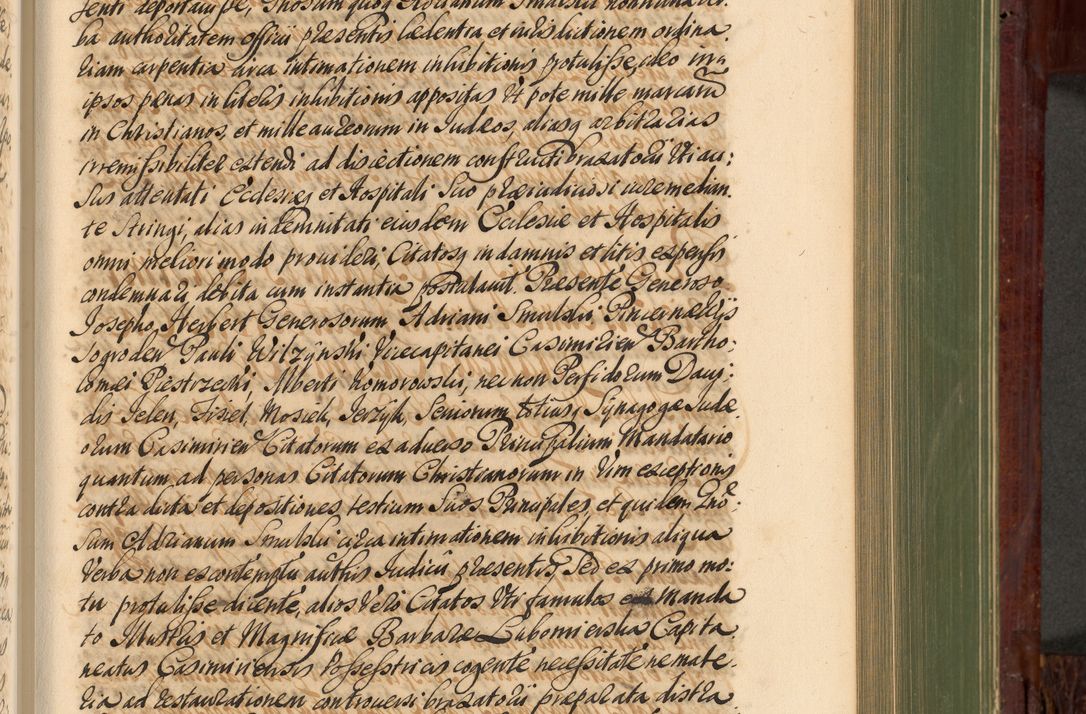 senti deportasse, Gnosum quoq Adrianum Smulski nonnulla ver:
ba authoritatem officii præsentis lædentia et iurisdictionem ordina:
riam carpentia circa intimationem inhibitionis protulisse, ideo in
ipsos pænas in literis inhibitionis appositas Vt pote mille marcarū
in Christianos, et mille aureorum in Iudæos, aliasq arbitrarias
irremissibiliter extendi ad disiectionem constructi braxatorii Vti au:
sus attentati Ecclesiæ et Hospitali Suo præiudiciosi iure median
te Stringi, alias indemnitati eiusdem Ecclesiæ et Hospitalis
omni meliori modo provideri, Citatosq in damnis et litis expensis
condemnari debita cum instantia postulavit. Præsente Generoso
Josepho Herbert Generosorum Adriani Smulski Pincernæ
Pauli Wilzÿnski Vicecapitanei Casimirien Bartho:
lomei Piestrzecki, Alberti Komorowski, nec non Perfidorum Davi:
dis Jelen, Fisiel, Mosiek, Jerzÿk, Seniorum totiusq Sÿnagogæ Iudæ
orum Casimirien Citatorum ex adverso Principalium Mandatario
quantum ad personas Citatorum Christianorum in Vim exceptionis
contra dicta et depositiones testium Suos Principales, et quidem Gnō:
sum Adrianum Smulski circa intimationem inhibitionis aliqua
Verba non ex contemptu autħis Iudicii præsentis, Sed ex primo mo:
tu protulisse dicente, alios Vero Citatos Vti famulos manda
to Illustris et Magnificæ Barbaræ Lubomierska Capita
neatus Casimiriensis Possessricis cogente necessitate ne mate:
ria ad restaurationem controversi braxatorii præparata distra